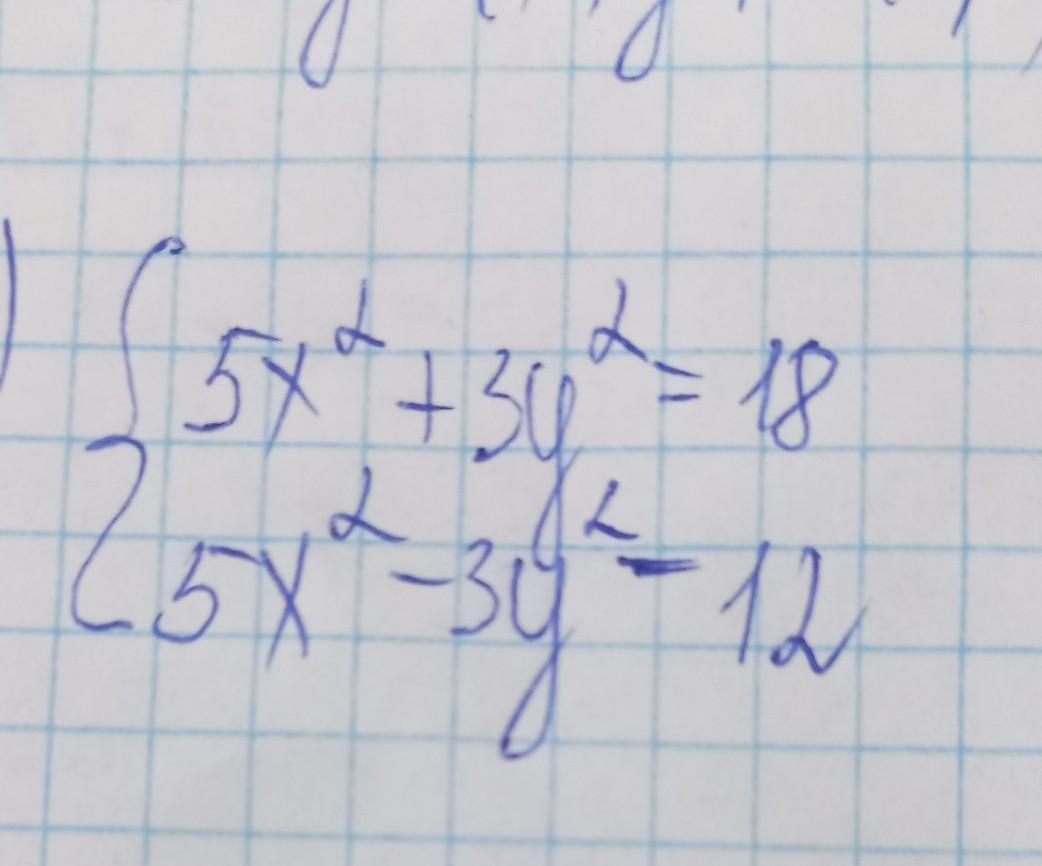 { 5x² + 3y² = 18
5x² - 3y² - 12